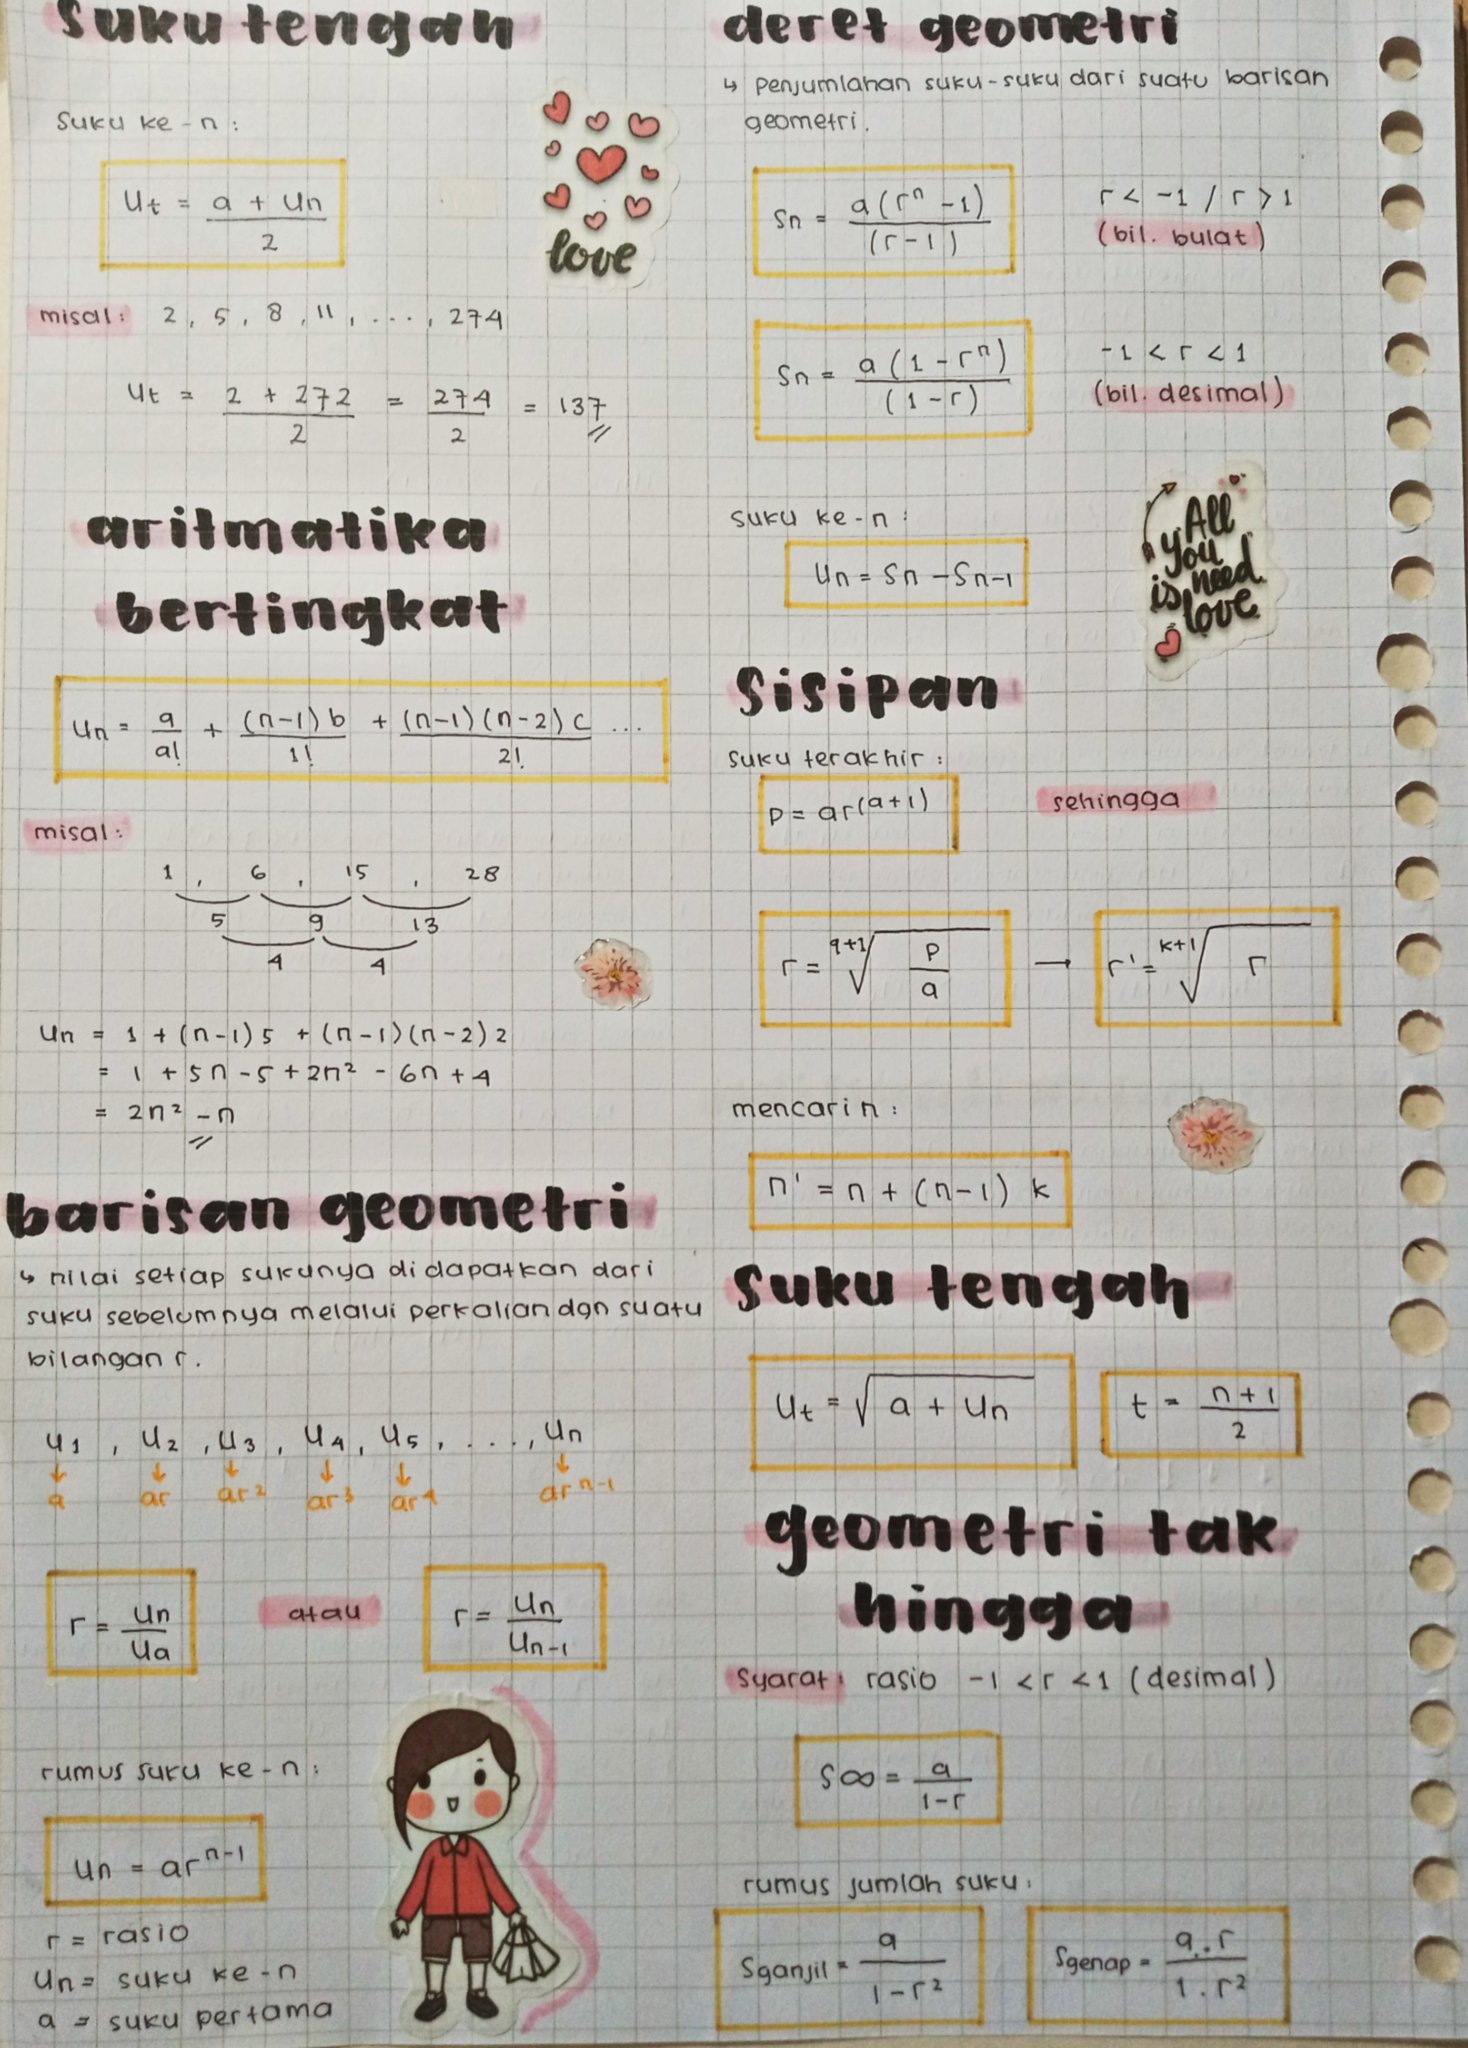 suku tengah
suku ke-n:
Ut = a + Un / 2
love
misal: 2, 5, 8, 11, ..., 274
Ut = 2 + 272 / 2 = 274 / 2 = 137
aritmatika
bertingkat
Un = a/a! + (n-1)b/1! + (n-1)(n-2)c/2! ...
misal:
1, 6, 15, 28
5 9 13
4 4
Un = 1 + (n-1)5 + (n-1)(n-2)2
= 1 + 5n - 5 + 2n² - 6n + 4
= 2n² - n
barisan geometri
↳ nilai setiap sukunya didapatkan dari
suku sebelumnya melalui perkalian dgn suatu
bilangan r.
U1, U2, U3, U4, U5, ..., Un
↓ ↓ ↓ ↓ ↓ ↓
a ar ar² ar³ ar⁴ arⁿ⁻¹
r = Un/Ua atau r = Un/Un-1
rumus suku ke-n:
Un = arⁿ⁻¹
r = rasio
Un = suku ke-n
a = suku pertama
deret geometri
↳ Penjumlahan suku-suku dari suatu barisan
geometri.
Sn = a(rⁿ - 1) / (r - 1) r < -1 / r > 1
(bil. bulat)
Sn = a(1 - rⁿ) / (1 - r) -1 < r < 1
(bil. desimal)
suku ke-n:
Un = Sn - Sn-1
All
you
need
is love
Sisipan
suku terakhir:
P = ar^(a+1) sehingga
r = ^(q+1)√(P/a) → r' = ^(k+1)√r
mencari n:
n' = n + (n-1) k
suku tengah
Ut = √(a + Un) t = n+1 / 2
geometri tak
hingga
Syarat: rasio -1 < r < 1 (desimal)
S∞ = a / 1-r
rumus jumlah suku:
Sganjil = a / 1-r² Sgenap = a.r / 1.r²